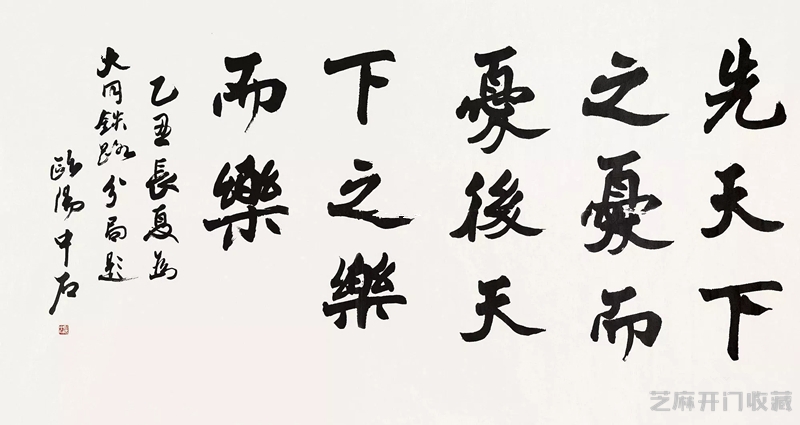 先天下
之憂而
憂後天
下之樂
而樂
乙丑長夏為
大同鉄路分局題
歐陽中石
芝麻开门收藏